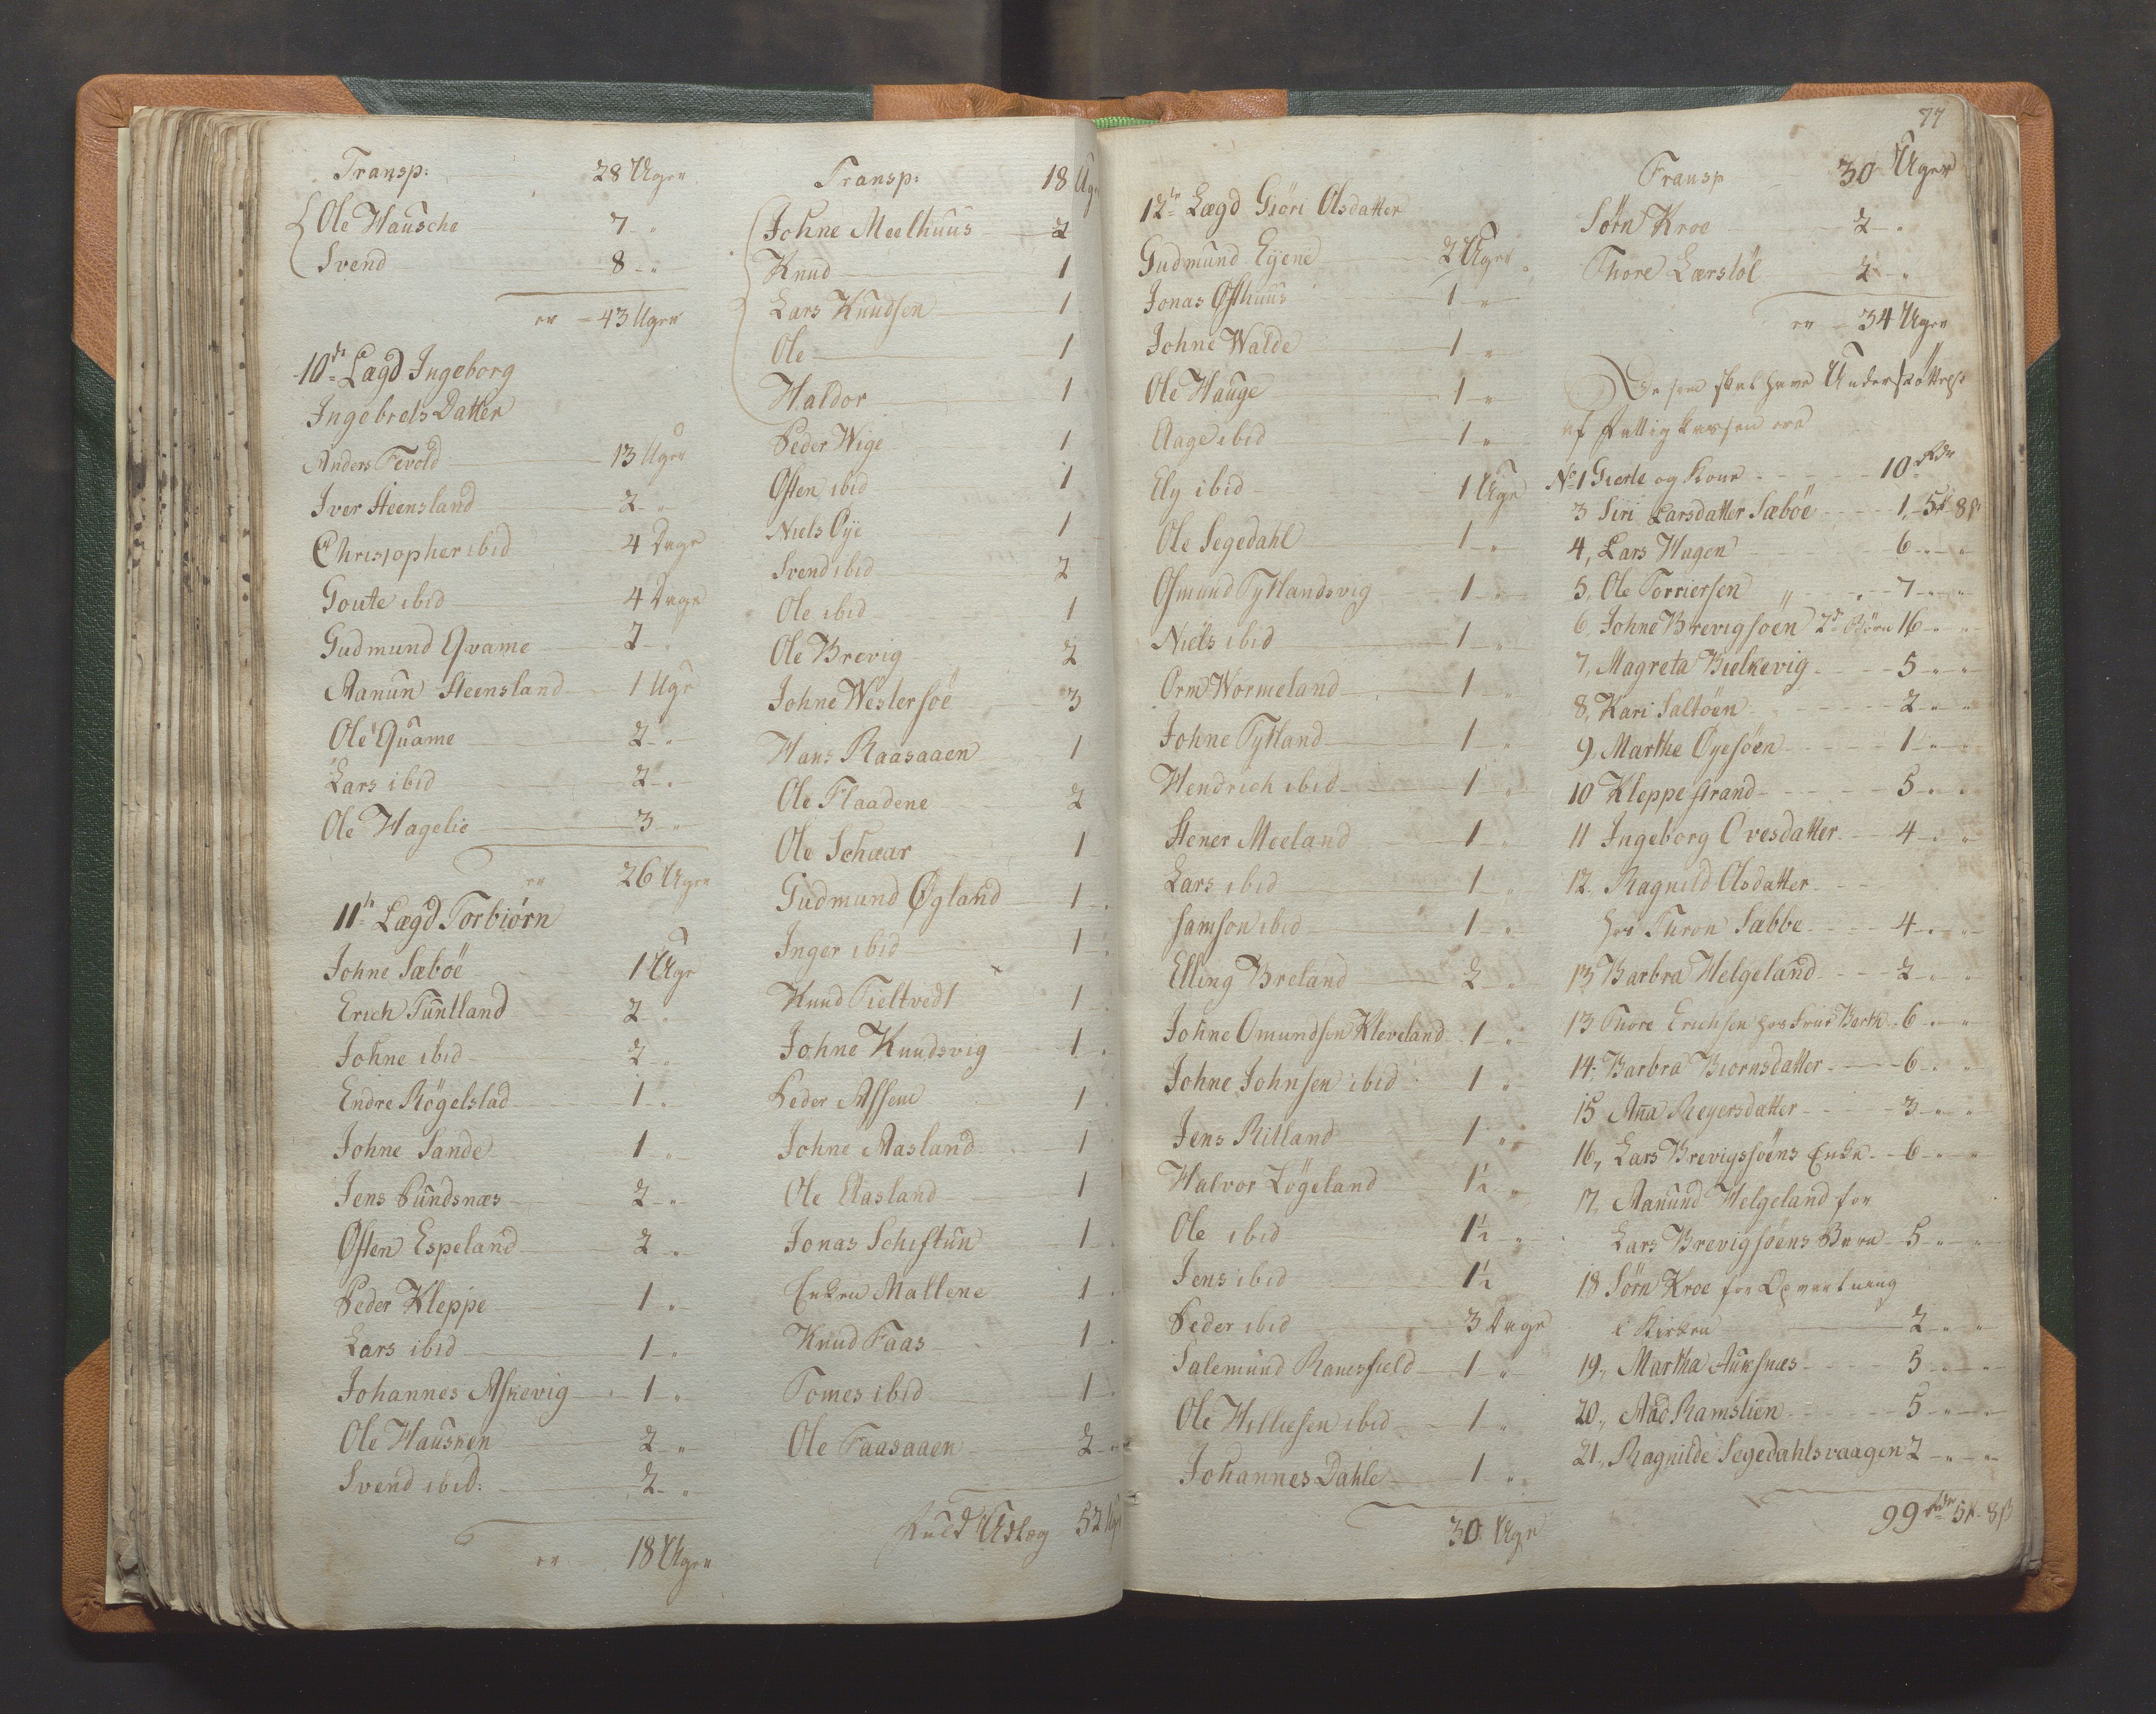 Transp: 28 Uger
Ole Hausche 7 "
Svend 8 "
er 43 Uger
10de Lægd Ingeborg
Ingebrets Datter
Anders Fevold 13 Uger
Iver Steensland 2 "
Christopher ibid 4 Dage
Goute ibid 4 Dage
Gudmund Qvame 2 "
Aanun Steensland 1 Uge
Ole Quame 2 "
Lars ibid 2 "
Ole Hagelie 3 "
er 26 Uger
11te Lægd Torbiørn
Johne Sæböe 1 Uge
Erich Tuntland 2 "
Johne ibid 2 "
Endre Rögelstad 1 "
Johne Sande 1 "
Jens Pundsnæs 2 "
Østen Espeland 2 "
Peder Kleppe 1 "
Lars ibid 1 "
Johannes Askevig 1 "
Ole Hausken 2 "
Svend ibid: 2 "
er 18 Uger
Transp: 18 Uger
Johne Meelhuus 2
Knud 1
Lars Knudsen 1
Ole 1
Haldor 1
Peder Wige 1
Østen ibid 1
Niels Øye 1
Svend ibid 2
Ole ibid 1
Ole Brevig 2
Johne Westersöe 3
Hans Raasaaen 1
Ole Flaadene 2
Ole Schaar 1
Gudmund Øgland 1
Inger ibid 1
Knud Tieltvedt 1
Johne Knudsvig 1
Peder Assem 1
Johne Aasland 1
Ole Aasland 1
Jonas Schiftun 1
Enken Mallene 1
Knud Faas 1
Tomes ibid 1
Ole Faasaaen 2
Fuld Udlæg 52 Uger
77
12te Lægd Giöri Olsdatter
Gudmund Eyene 2 Uger
Jonas Østhuus 1 "
Johne Walde 1 "
Ole Hauge 1 "
Aage ibid 1 "
Ely ibid 1 Uge
Ole Segedahl 1 "
Osmund Tytlandsvig 1 "
Niels ibid 1 "
Orm Wormeland 1 "
Johne Tytland 1 "
Hendrich ibid 1 "
Stener Meeland 1 "
Lars ibid 1 "
Samson ibid 1 "
Elling Breland 2 "
Johne Omundsen Kleveland 1 "
Johne Johnsen ibid 1 "
Jens Ritland 1 "
Halvor Lögeland 1½ "
Ole ibid 1½ "
Jens ibid 1½
Peder ibid 3 Dage
Salemund Ramsfield 1 "
Ole Helliesen ibid 1 "
Johannes Dahle 1 "
30 Uge
Transp 30 Uger
Sörn Kroe 2 "
Thore Lærstöl 2 "
er 34 Uger
De som skal have Understöttelse
af Fattigkassen ere
No 1 Gierle og Kone 10 Rdr
3 Siri Larsdatter Sæböe 1, 5 8 ß
4, Lars Hagen 6 " "
5, Ole Torriersen " 7 " "
6, Johne Brevigsöen 2de Börn 16 " "
7, Magreta Bielkevig 5 " "
8, Kari Saltöen 2 " "
9, Marthe Øyesöen 1 " "
10 Kleppe strand 5 " "
11 Ingeborg Ovesdatter 4 " "
12. Ragnild Olsdatter
hos Thron Sæbbe 4 " "
13 Barbra Helgeland 2 " "
13 Thore Erichsen hos Barth 6 " "
14. Barbra Biornsdatter 6 " "
15 Aña Reyersdatter 3 " "
16, Lars Brevigsöens Enke 6 " "
17, Aanund Helgeland for
Lars Brevigsöens Barn 5 " "
18 Sörn Kroe for Opvartning
i Kirken 2 " "
19., Martha Auksnæs 5 " "
20., Aad Ramslien 5 " "
21., Ragnilde Segedahlsvaagen 2 " "
99 Rdr 5 8 ß